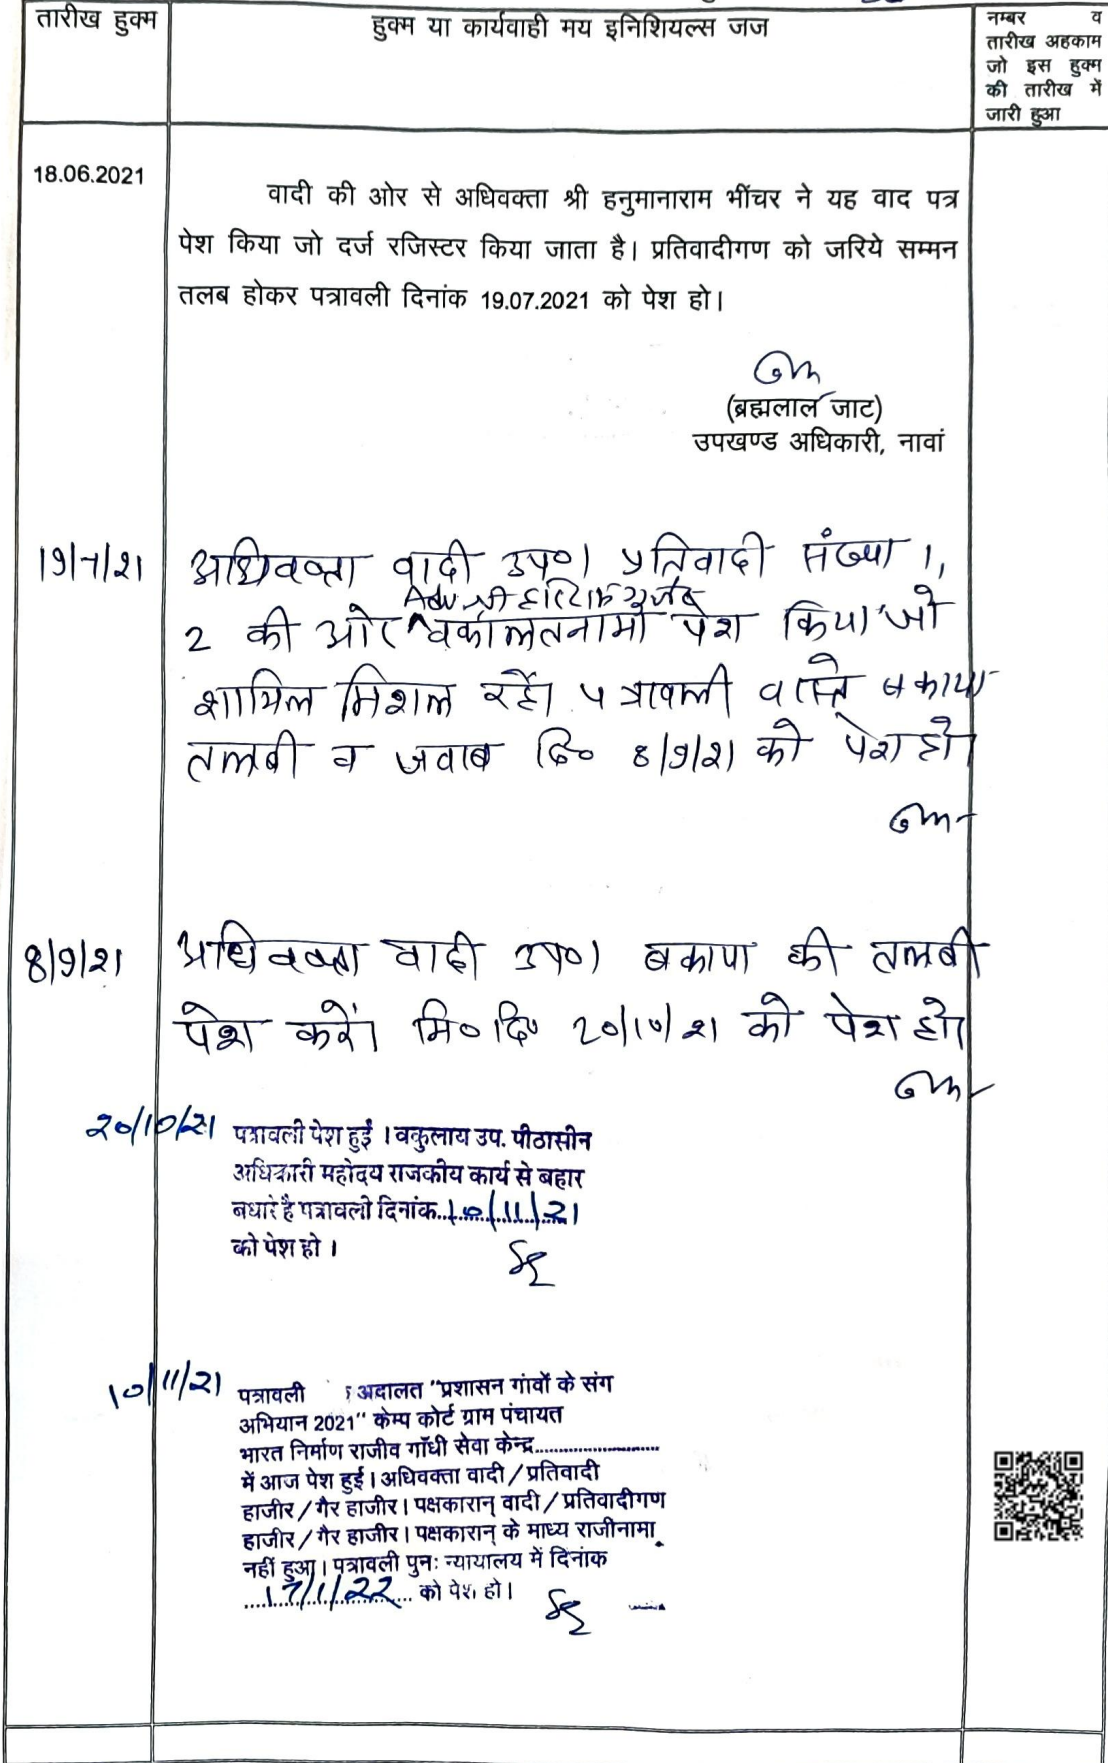 तारीख हुक्म
हुक्म या कार्यवाही मय इनिशियल्स जज
नम्बर व
तारीख अहकाम
जो इस हुक्म
की तारीख में
जारी हुआ
18.06.2021
वादी की ओर से अधिवक्ता श्री हनुमानाराम भींचर ने यह वाद पत्र
पेश किया जो दर्ज रजिस्टर किया जाता है। प्रतिवादीगण को जरिये सम्मन
तलब होकर पत्रावली दिनांक 19.07.2021 को पेश हो।
(ब्रह्मलाल जाट)
उपखण्ड अधिकारी, नावां
19/7/21
अधिवक्ता वादी उप०। प्रतिवादी संख्या 1,
Adv श्री
2 की ओर वकालतनामा पेश किया जो
शामिल मिशल रहे। पत्रावली वास्ते बकाया
तलबी व जवाब दि० 8/9/21 को पेश हो।
8/9/21
अधिवक्ता वादी उप०। बकाया की तलबी
पेश करें। मि० दि० 20/10/21 को पेश हो।
20/10/21
पत्रावली पेश हुई । वकुलाय उप. पीठासीन
अधिकारी महोदय राजकीय कार्य से बहार
बधारे है पत्रावली दिनांक..10/11/21
को पेश हो ।
10/11/21
पत्रावली अदालत "प्रशासन गांवों के संग
अभियान 2021" केम्प कोर्ट ग्राम पंचायत
भारत निर्माण राजीव गाँधी सेवा केन्द्र........................
में आज पेश हुई। अधिवक्ता वादी / प्रतिवादी
हाजीर / गैर हाजीर। पक्षकारान् वादी / प्रतिवादीगण
हाजीर / गैर हाजीर। पक्षकारान् के माध्य राजीनामा
नहीं हुआ। पत्रावली पुनः न्यायालय में दिनांक
....17/1/22.... को पेश हो।